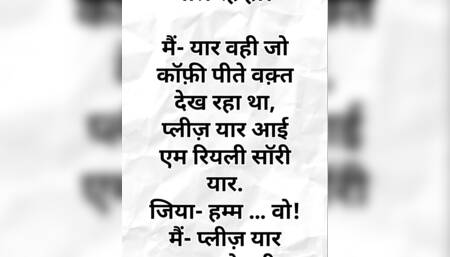 मैं- यार वही जो
कॉफ़ी पीते वक़्त
देख रहा था,
प्लीज़ यार आई
एम रियली सॉरी
यार.
जिया- हम्म ... वो!
मैं- प्लीज़ यार